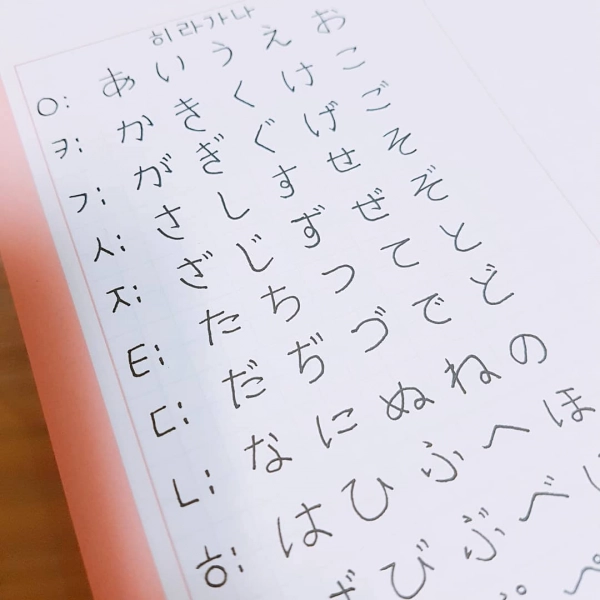 히라가나
ㅇ: あ い う え お
ㅋ: か き く け こ
ㄱ: が ぎ ぐ げ ご
ㅅ: さ し す せ そ
ㅈ: ざ じ ず ぜ ぞ
ㅌ: た ち つ て と
ㄷ: だ ぢ づ で ど
ㄴ: な に ぬ ね の
ㅎ: は ひ ふ へ ほ
び ぶ べ